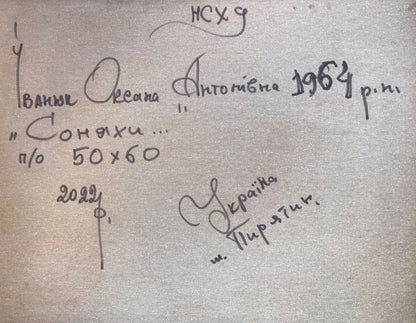 НСХУ
Іванюк Оксана Антонівна 1964 р.н.
„Соняхи...”
п/о 50х60
2022 р.
Україна
м. Пирятин.